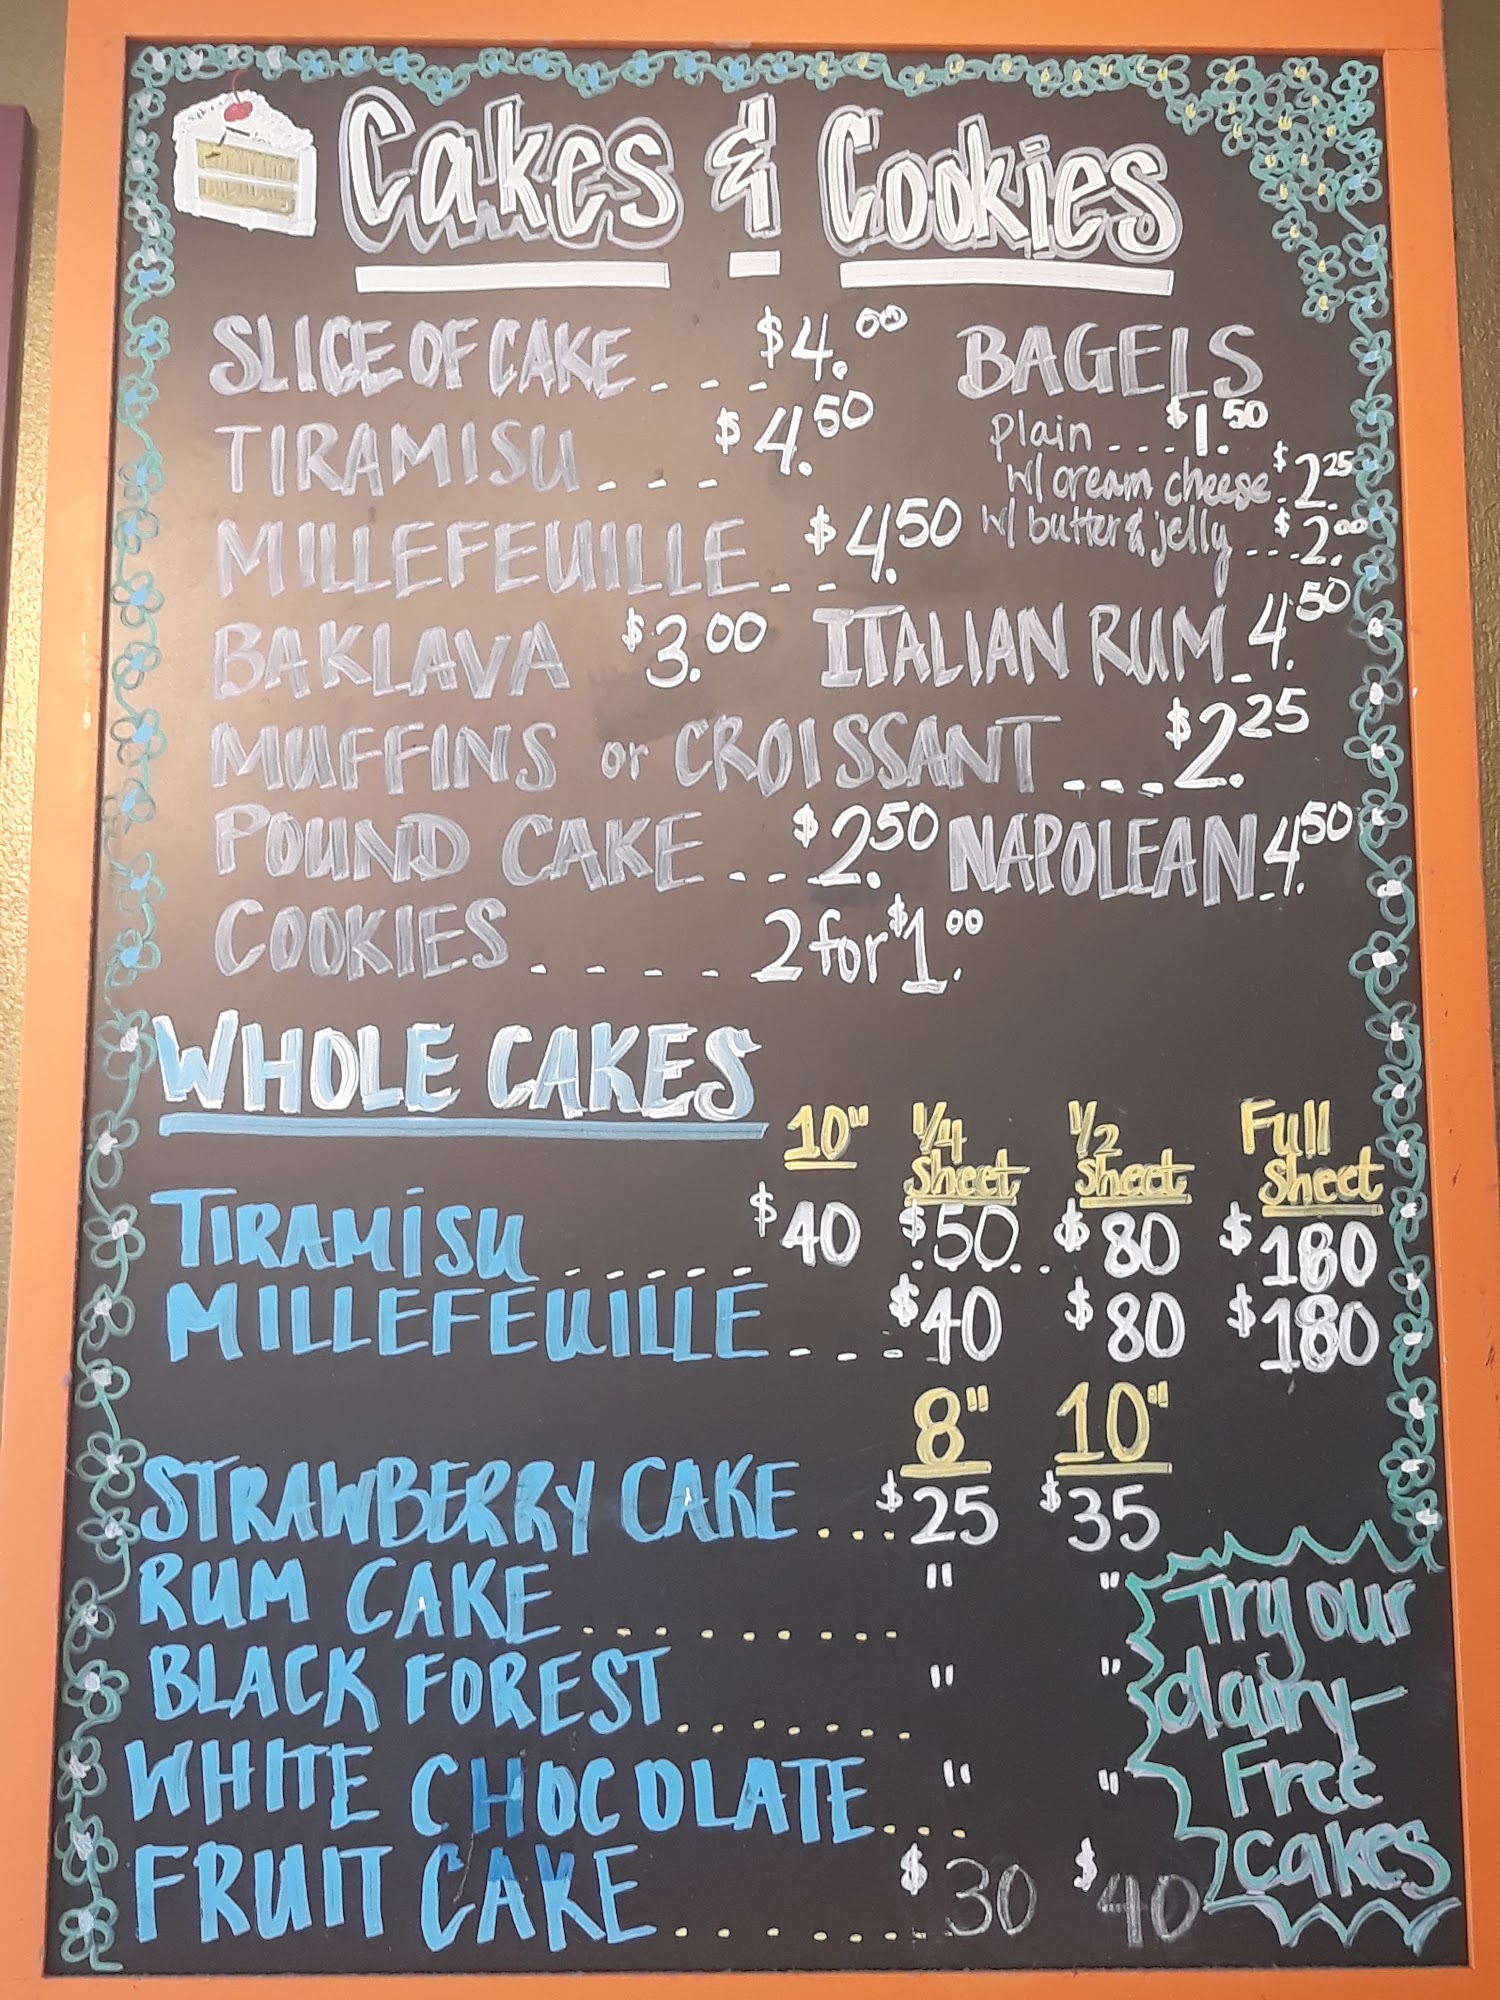 Cakes & Cookies
SLICE OF CAKE _ _ _ $4.00
TIRAMISU _ _ _ $4.50
MILLEFEUILLE _ _ $4.50
BAGELS
plain _ _ _ $1.50
w/ cream cheese _ $2.25
w/ butter & jelly _ _ _ $2.00
BAKLAVA $3.00 ITALIAN RUM _ 4.50
MUFFINS or CROISSANT _ _ _ $2.25
POUND CAKE _ _ $2.50 NAPOLEAN _ 4.50
COOKIES _ _ _ _ 2 for $1.00
WHOLE CAKES
10" 1/4 Sheet 1/2 Sheet Full Sheet
TIRAMISU _ _ _ _ _ $40 $50 $80 $180
MILLEFEUILLE _ _ _ $40 $80 $180
8" 10"
STRAWBERRY CAKE ... $25 $35
RUM CAKE .......... " "
BLACK FOREST ....... " "
WHITE CHOCOLATE ... " "
FRUIT CAKE ....... $30 $40
Try our
dairy-
Free
cakes